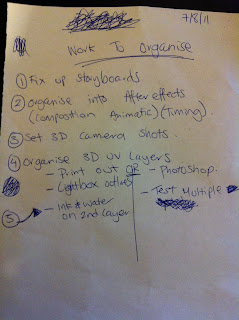 7/8/11
Work To Organise
① Fix up storyboards
② Organise into After effects
(Compostion Animatic) (Timing)
③ Set 3D Camera Shots.
④ Organise 3D UV Layers
- Print out OR - Photoshop.
- Lightbox outlines - Test Multiple
- Ink & Water
on 2nd Layer
⑤